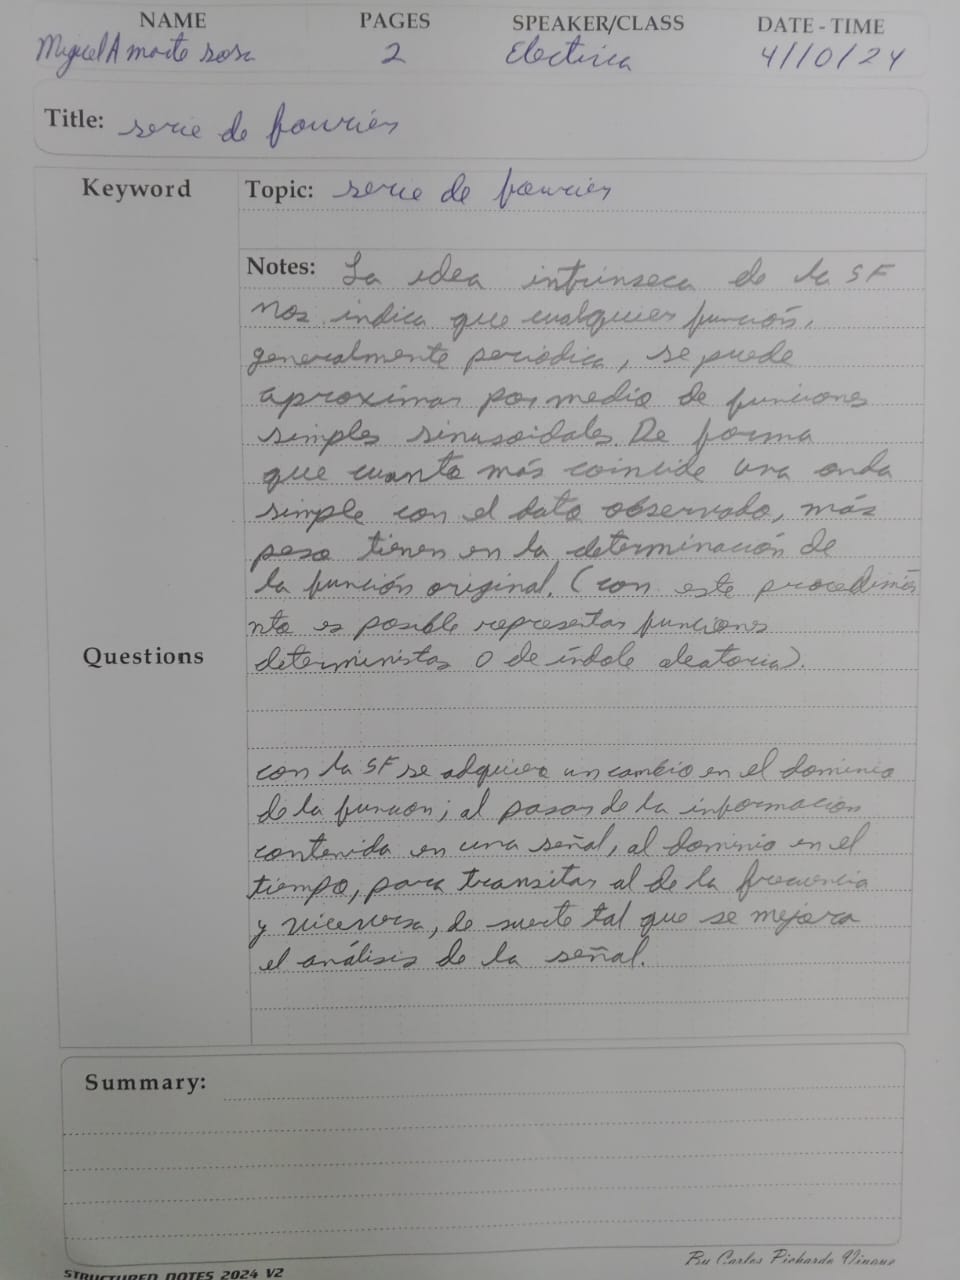 NAME PAGES SPEAKER/CLASS DATE - TIME
Miguel A morte sosa 2 Electrica 4/10/24
Title: serie de fourier
Keyword Topic: serie de fourier
Notes: La idea intrinseca de la SF
nos indica que cualquier función,
generalmente periodica, se puede
aproximar por medio de funciones
simples sinusoidales. De forma
que cuanto más coincide una onda
simple con el dato observado, más
peso tienen en la determinación de
la función original. (con este procedimie
nto es posible representar funciones
Questions deterministas o de índole aleatoria).
con la SF se adquiere un cambio en el dominio
de la funcion; al pasar de la informacion
contenida en una señal, al dominio en el
tiempo, para transitar al de la frecuencia
y viceversa, de suerte tal que se mejora
el análisis de la señal.
Summary:
By Carlos Pichardo Viuque
STRUCTURED NOTES 2024 V2